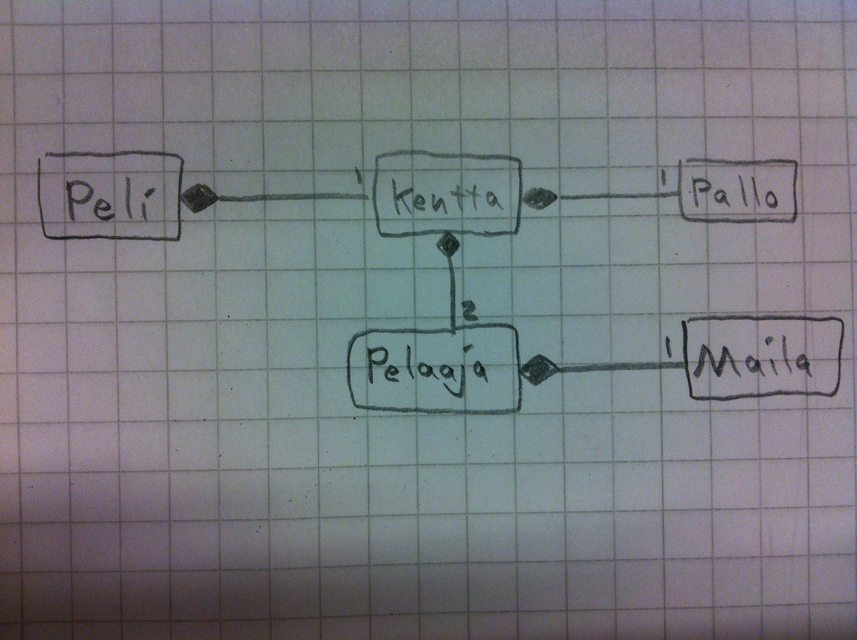 Peli
1
Kentta
1
Pallo
2
Pelaaja
1
Maila